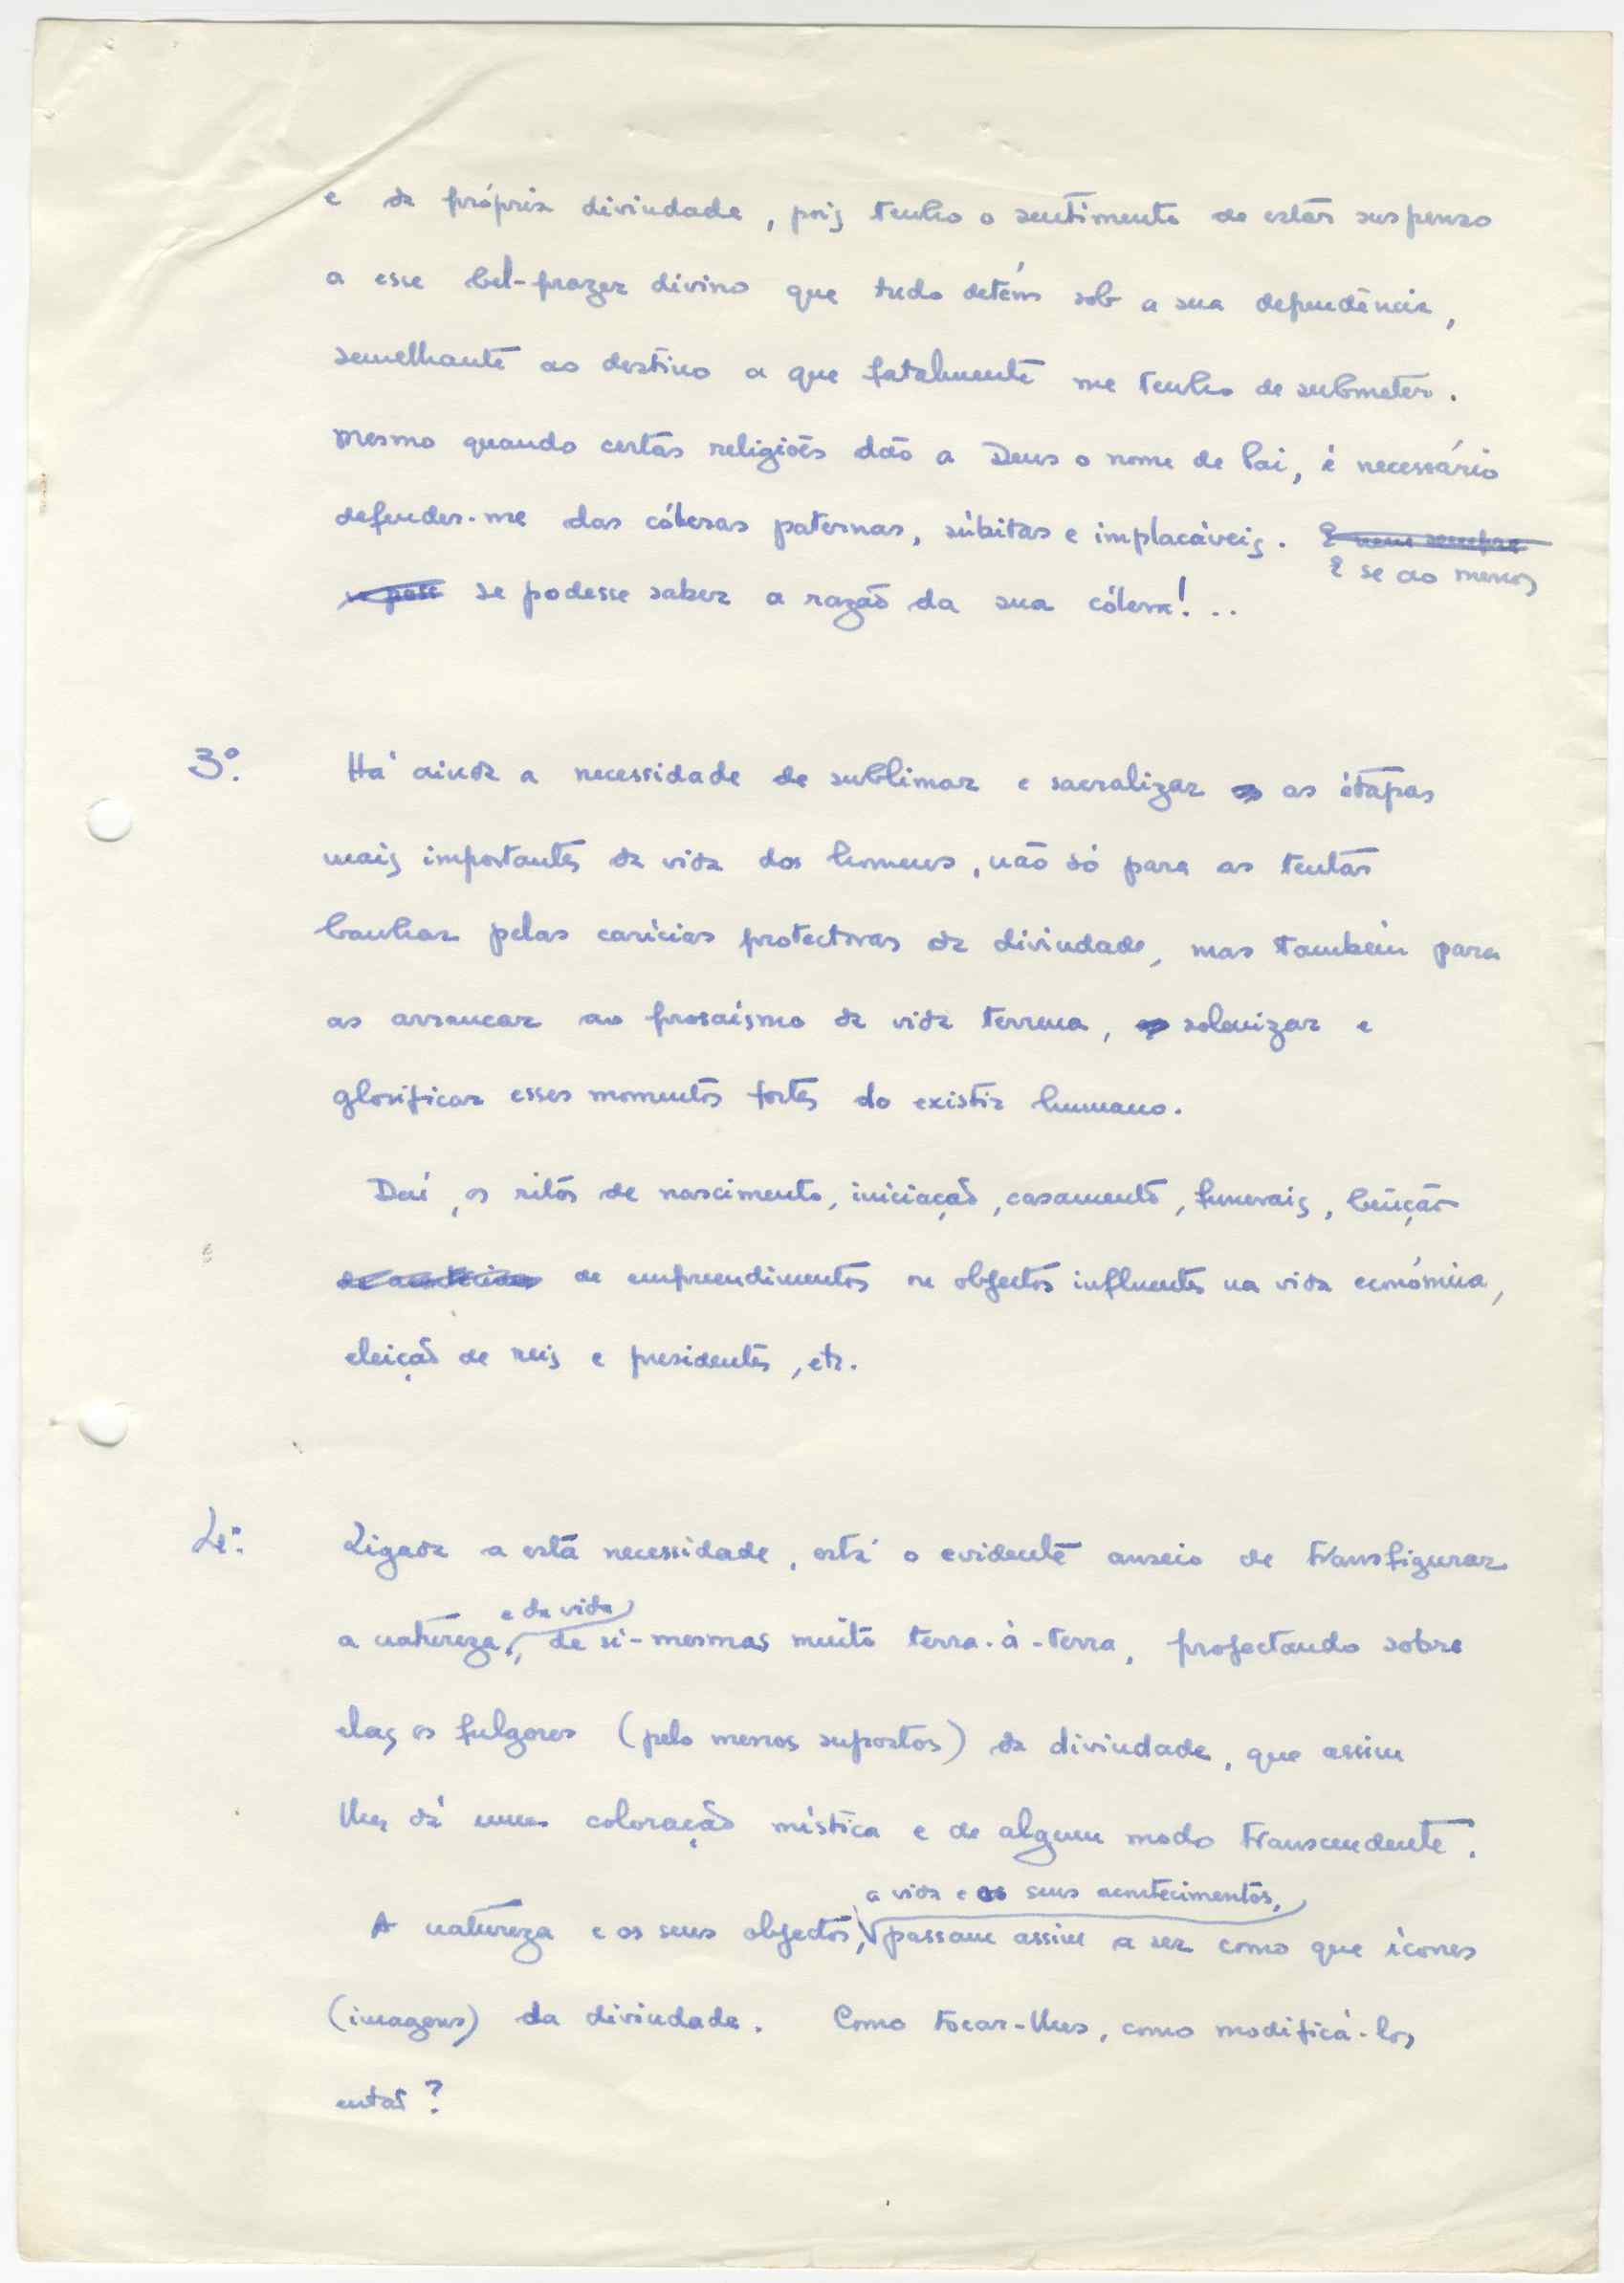 e da própria divindade, pois tenho o sentimento de estar suspenso
a esse bel-prazer divino que tudo detém sob a sua dependência,
semelhante ao destino a que fatalmente me tenho de submeter.
Mesmo quando certas religiões dão a Deus o nome de Pai, é necessário
defender-me das cóleras paternas, súbitas e implacáveis. E nem sempre
E se ao menos
se poss se podesse saber a razão da sua cólera!...
3º. Há ainda a necessidade de sublimar e sacralizar as étapas
mais importantes da vida dos homens, não só para as tentar
banhar pelas carícias protectoras da divindade, mas também para
as arrancar ao prosaísmo da vida terrena, solenizar e
glorificar esses momentos fortes do existir humano.
Daí, os ritos de nascimento, iniciação, casamento, funerais, bênção
de empreendimentos ou objectos influentes na vida económica,
eleição de reis e presidentes, etc.
4º. Ligada a esta necessidade, está o evidente anseio de transfigurar
e da vida
a natureza, de si-mesmas muito terra-à-terra, projectando sobre
elas os fulgores (pelo menos supostos) da divindade, que assim
lhes dá uma coloração mística e de algum modo transcendente.
a vida e os seus acontecimentos,
A natureza e os seus objectos, passam assim a ser como que ícones
(imagens) da divindade. Como tocar-lhes, como modificá-los
então?